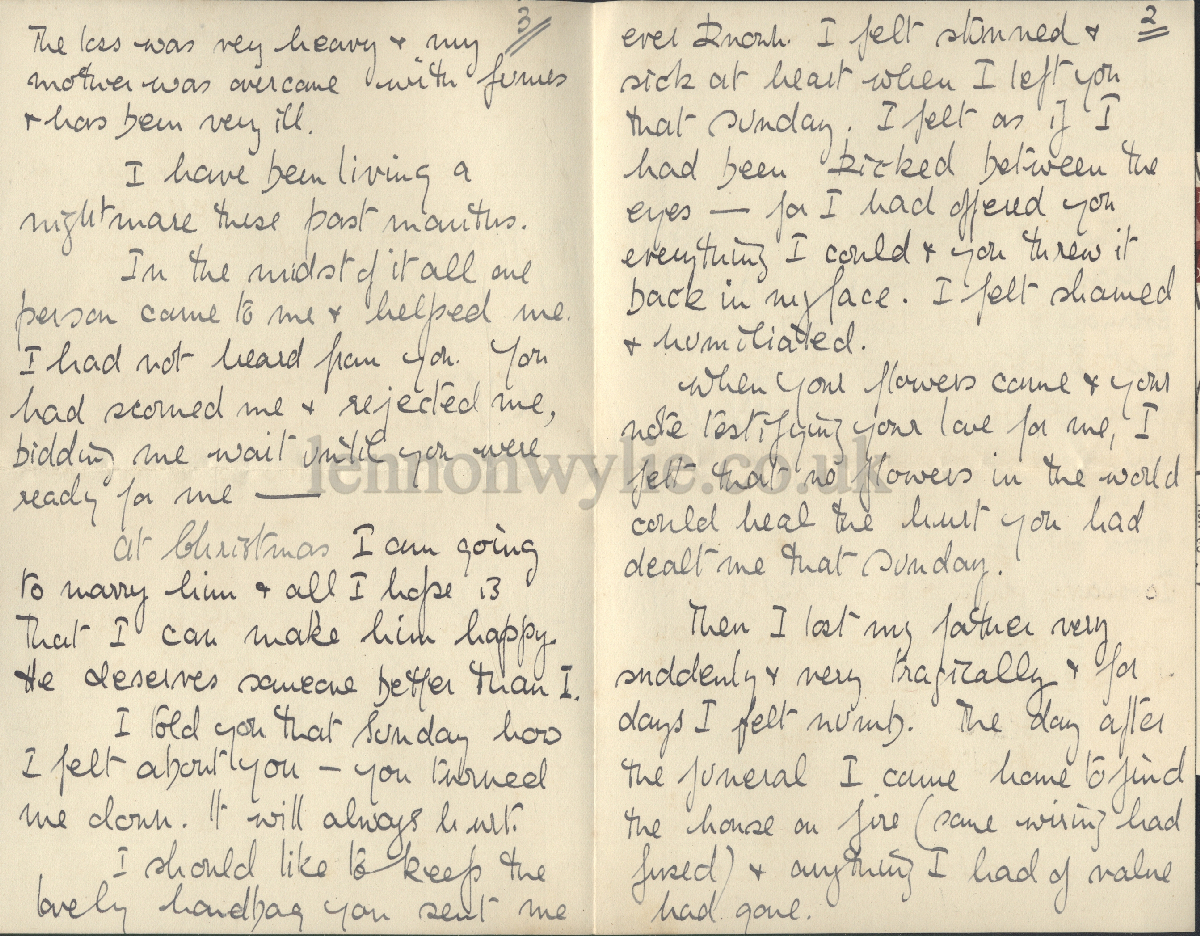 2
ever know. I felt stunned &
sick at heart when I left you
that Sunday. I felt as if I
had been kicked between the
eyes — for I had offered you
everything I could & you threw it
back in my face. I felt shamed
& humiliated.
When your flowers came & your
note testifying your love for me, I
felt that no flowers in the world
could heal the hurt you had
dealt me that Sunday.
Then I lost my father very
suddenly & very tragically & for
days I felt numb. The day after
the funeral I came home to find
the house on fire (some wiring had
fused) & anything I had of value
had gone.
3
The loss was very heavy & my
mother was overcome with fumes
& has been very ill.
I have been living a
nightmare these past months.
In the midst of it all one
person came to me & helped me.
I had not heard from you. You
had scorned me & rejected me,
bidding me wait until you were
ready for me —
At Christmas I am going
to marry him & all I hope is
that I can make him happy.
He deserves someone better than I.
I told you that Sunday how
I felt about you — you turned
me down. It will always hurt.
I should like to keep the
lovely handbag you sent me
lennonwylie.co.uk